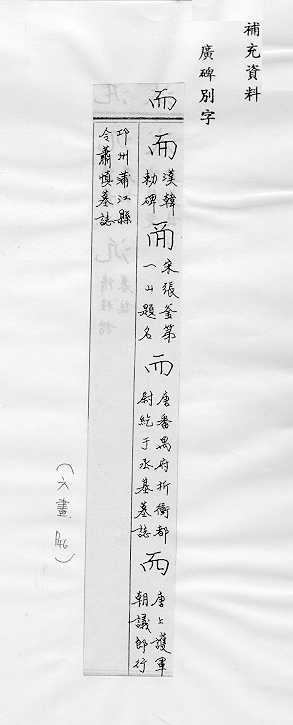 補充資料
廣碑別字
而
而 漢韓勑碑
而 宋張釜第一山題名
而 唐番禺府折衝都尉紇于承基墓誌
而 唐上護軍朝議郎行
邛州蒲江縣令蕭慎墓誌
(六畫 746)